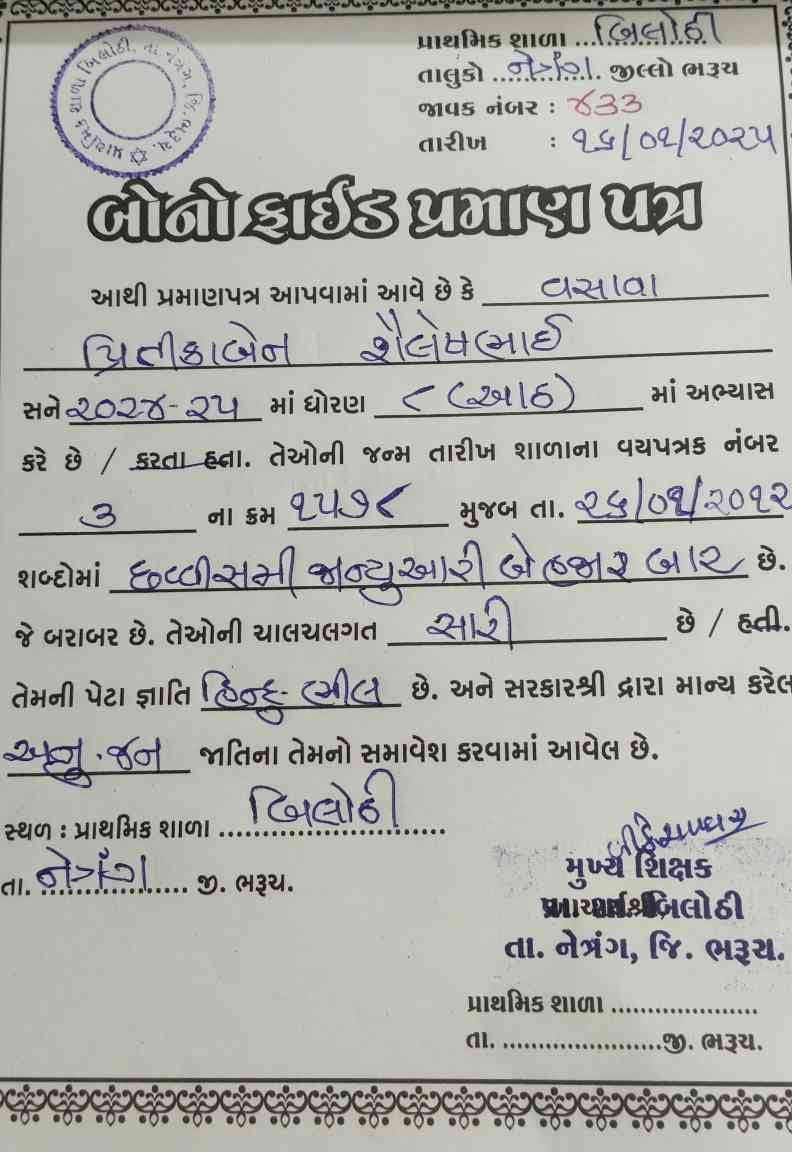 પ્રાથમિક શાળા બિલોઠી, તા. નેત્રંગ, જિ. ભરૂચ.
પ્રાથમિક શાળા ...બિલોઠી
તાલુકો ...નેત્રંગ... જીલ્લો ભરૂચ
જાવક નંબર : ૪૩૩
તારીખ : ૧૬/૦૧/૨૦૨૫
બોનોફાઈડ પ્રમાણ પત્ર
આથી પ્રમાણપત્ર આપવામાં આવે છે કે વસાવા
પ્રિતીકાબેન શૈલેષભાઈ
સને ૨૦૨૪-૨૫ માં ધોરણ ૮ (આઠ) માં અભ્યાસ
કરે છે / કરતા હતા. તેઓની જન્મ તારીખ શાળાના વયપત્રક નંબર
૩ ના ક્રમ ૧૫૭૮ મુજબ તા. ૨૬/૦૧/૨૦૧૨
શબ્દોમાં છવ્વીસમી જાન્યુઆરી બે હજાર બાર છે.
જે બરાબર છે. તેઓની ચાલચલગત સારી છે / હતી.
તેમની પેટા જ્ઞાતિ હિન્દુ-ભીલ છે. અને સરકારશ્રી દ્વારા માન્ય કરેલ
અનુ.જન જાતિના તેમનો સમાવેશ કરવામાં આવેલ છે.
સ્થળ : પ્રાથમિક શાળા બિલોઠી
તા. નેત્રંગ જી. ભરૂચ.
મુખ્ય શિક્ષક
બિલોઠી
તા. નેત્રંગ, જિ. ભરૂચ.
પ્રાથમિક શાળા ....................
તા. ......................જી. ભરૂચ.